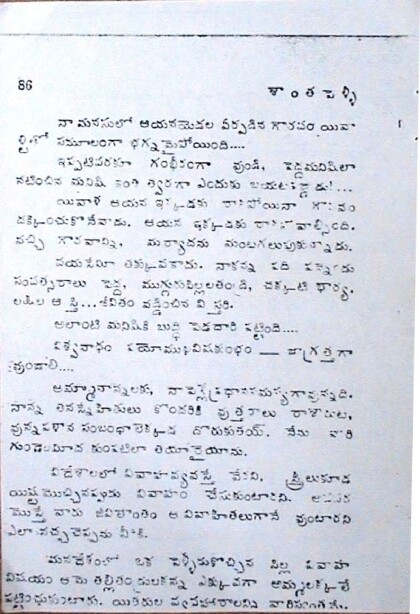 86
శాంతపెళ్ళి
నా మనసులో ఆయనయెడల యేర్పడిన గౌరవం యివా
ళ్టితో సమూలంగా భగ్నమైపోయింది....
ఇప్పటివరకూ గంభీరంగా వుండి, పెద్దమనిషిలా
నటించిన మనిషి ఇంత త్వరగా ఎందుకు బయటపడ్డాడు!...
యివాళ ఆయన ఇక్కడకు రాకపోయినా గౌరవం
దక్కించుకొనేవాడు. ఆయన ఇక్కడకు రాకపోవాల్సింది.
వచ్చి గౌరవాన్ని, మర్యాదను మంటగలుపుకున్నాడు.
వయసేమీ తక్కువకాదు. నాకన్నా పది పన్నెండు
సంవత్సరాలు పెద్ద, ముగ్గురుపిల్లలతండ్రి, చక్కటి భార్య,
ఆ స్తి...జీవితం వడ్డించిన వి స్తరి.
అలాంటి మనిషికి బుద్ధి పెడదారి పట్టింది....
విశ్వనాధం పయోముఖవిషకుంభం — జాగ్రత్తగా
వుండాలి....
అమ్మానాన్నలకు, నా పెళ్ళే ప్రధానసమస్యగావున్నది.
నాన్న తనస్నేహితులు కొందరికి వుత్తరాలు రాశాడట,
వున్నపళాన సంబంధాలెక్కడ దొరుకుతయ్. నేను వారి
గుండెలమీద కుంపటిలా తయారైయాను.
విదేశాలలో వివాహవ్యవస్తే వేరని. స్త్రీలుకూడ
యిష్టమొచ్చినప్పుడు వివాహం చేసుకుంటారని.
మొస్తే వారు జీవితాంతం అవివాహితలుగానే వుంటారని
ఎలా చెప్పను వీరికి.
మనదేశంలో ఒక పెళ్ళీడుకొచ్చిన పిల్ల వివాహ
విషయం ఆమె తల్లితండ్రులకన్న ఎక్కువగా అమ్మలక్కలే
పట్టించుకుంటారు. యితరుల వ్యవహారాలను